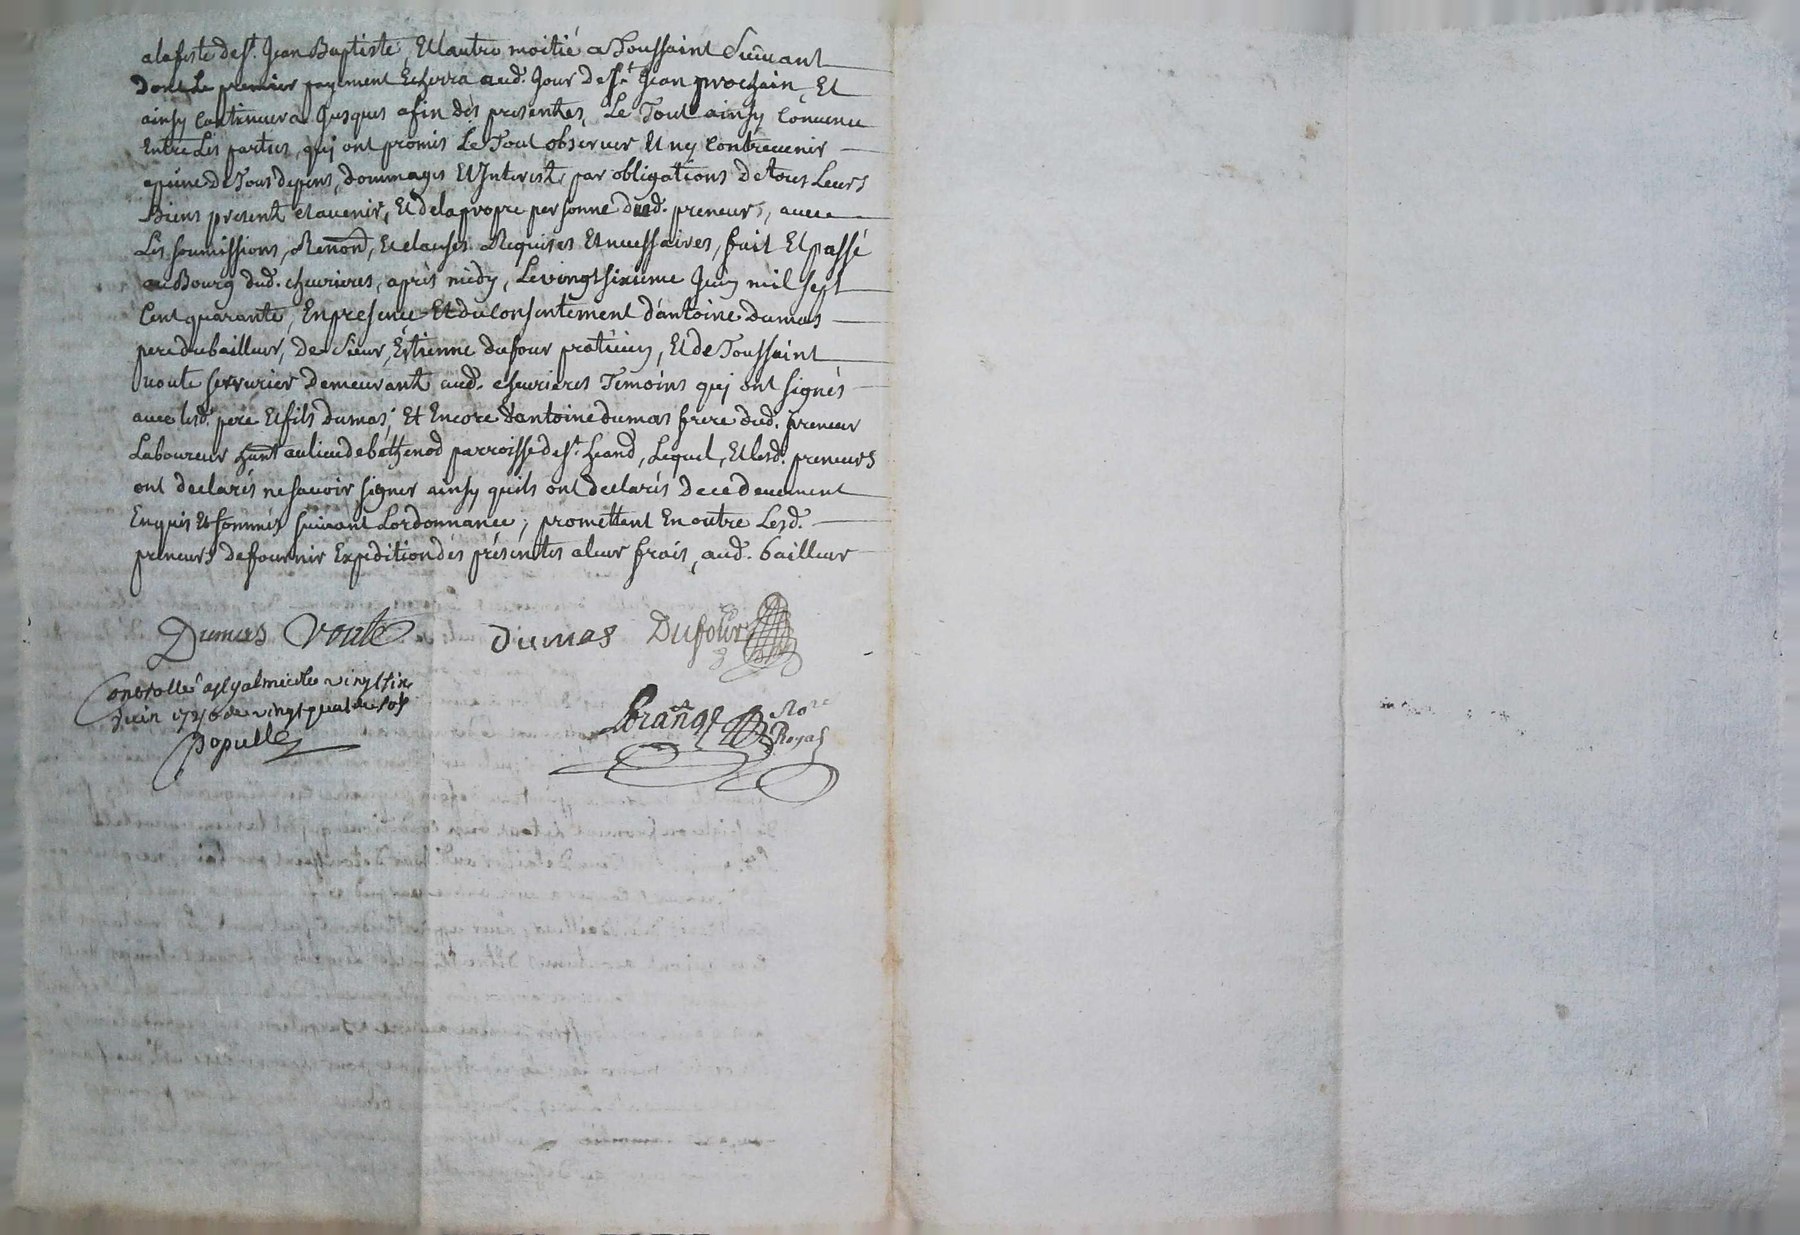 alafeste de st. Jean Baptiste, Et lautre moitié a Toussaint Suivant
Dont Le premier payement Echerra aud. Jour de st. Jean prochain, Et
ainsy Continuera Jusques afin des presentes, Le Tout ainsy Convenu
Entre Les parties, quj ont promis Le Tout observer Et ny Contrevenir
apeine de Tous depens, dommages Et Interest, par obligations de tous Leurs
Biens present et avenir, Et de la propre personne dud. preneurs, avec
Les soumissions, Renon̄, Et clauses Requises Et necessaires, fait Et passé
au Bourg dud. chevrieres, après midy, Le vingt sixieme Juin mil sept
Cent quarante, En presence Et du Consentement d'antoine dumas
pere du bailleur, de sieur, Estienne dufour praticien, Et de Toussaint
voute serrurier demeurant aud. chevrieres Temoins quj ont signés
avec lesd. pere Et fils dumas, Et Encore d'antoine dumas frere dud. preneur
Laboureur hant au lieu de bethenod parroisse de st. heand, Lequel, Et lesd. preneurs
ont declarés ne savoir signer ainsy quils ont declarés de ce deuement
Enquis Et sommés suivant Lordonnance, promettent En outre Lesd.
preneurs de fournir Expedition des présentes a leur frais, aud. bailleur
Dumas Voute dumas Dufour
Controllé a st galmier le vingt six
Juin 1740 de vingt quatre sols
Populle
Nore
Royal